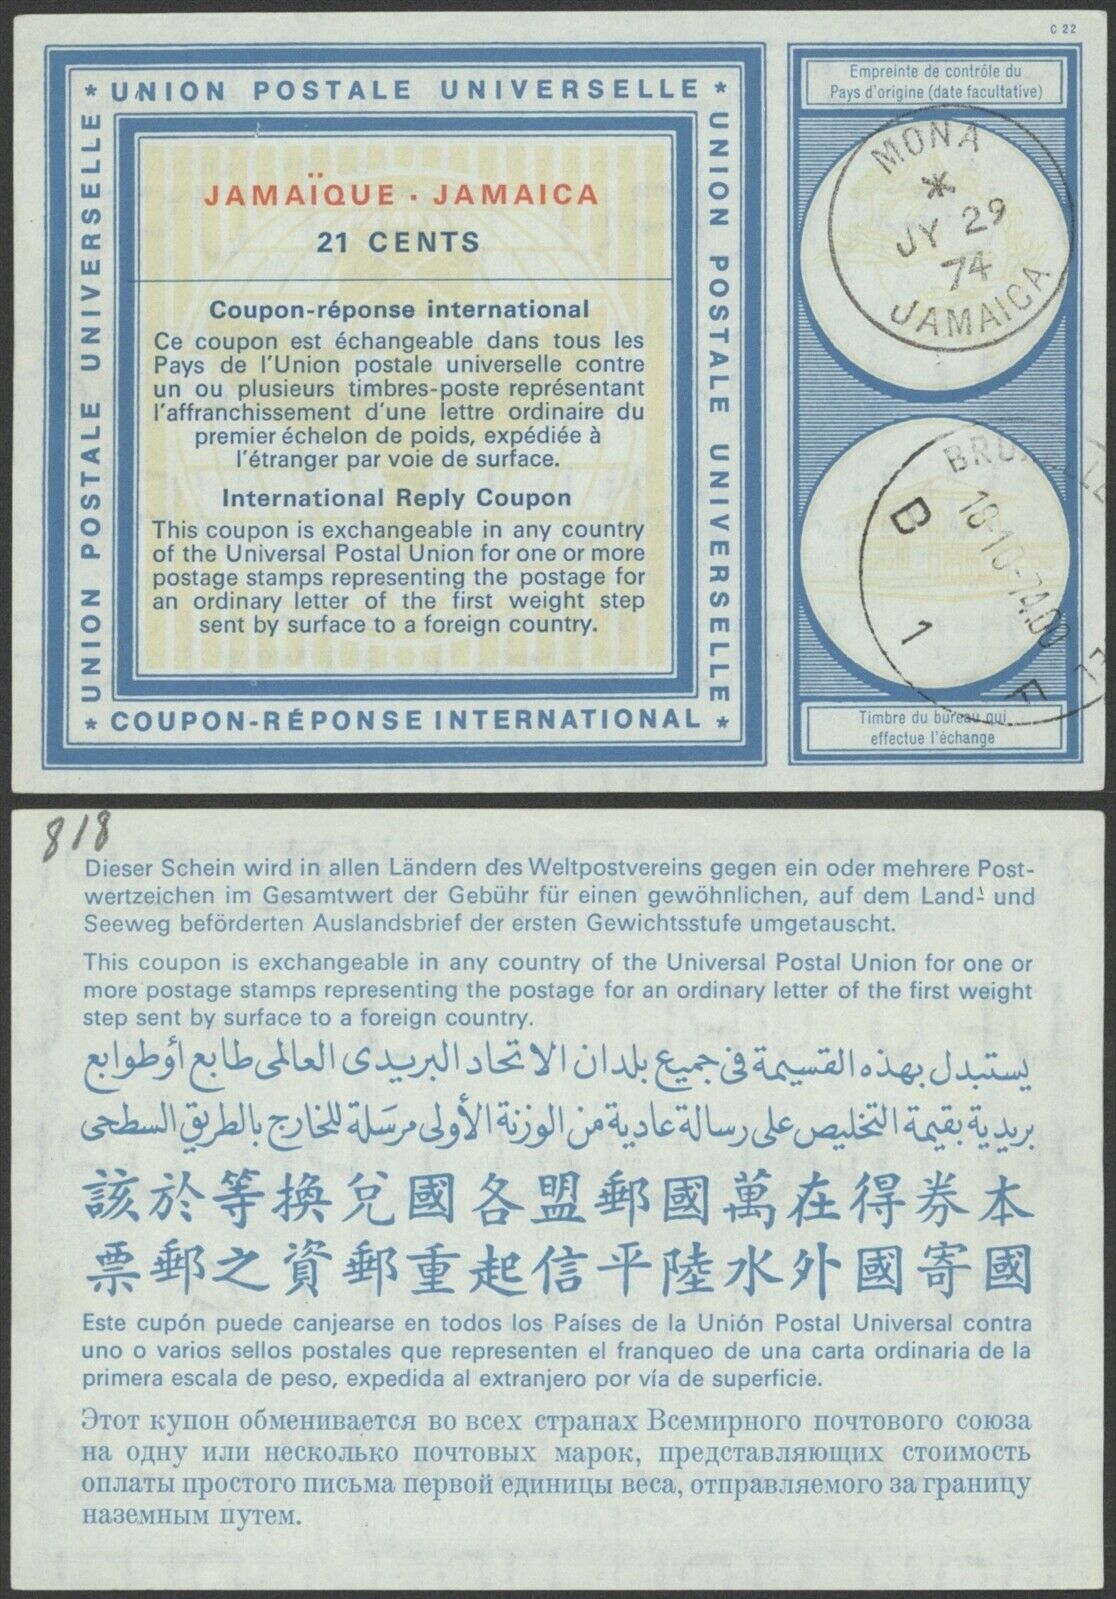 C 22
* UNION POSTALE UNIVERSELLE *
UNION POSTALE UNIVERSELLE
UNION POSTALE UNIVERSELLE
JAMAÏQUE · JAMAICA
21 CENTS
Coupon-réponse international
Ce coupon est échangeable dans tous les
Pays de l'Union postale universelle contre
un ou plusieurs timbres-poste représentant
l'affranchissement d'une lettre ordinaire du
premier échelon de poids, expédiée à
l'étranger par voie de surface.
International Reply Coupon
This coupon is exchangeable in any country
of the Universal Postal Union for one or more
postage stamps representing the postage for
an ordinary letter of the first weight step
sent by surface to a foreign country.
* COUPON-RÉPONSE INTERNATIONAL *
Empreinte de contrôle du
Pays d'origine (date facultative)
MONA
*
JY 29
74
JAMAICA
B
1
F
Timbre du bureau qui
effectue l'échange
818
Dieser Schein wird in allen Ländern des Weltpostvereins gegen ein oder mehrere Post-
wertzeichen im Gesamtwert der Gebühr für einen gewöhnlichen, auf dem Land- und
Seeweg beförderten Auslandsbrief der ersten Gewichtsstufe umgetauscht.
This coupon is exchangeable in any country of the Universal Postal Union for one or
more postage stamps representing the postage for an ordinary letter of the first weight
step sent by surface to a foreign country.
يستبدل بهذه القسيمة فى جميع بلدان الاتحاد البريدى العالمى طابع أو طوابع
بريدية بقيمة التخليص على رسالة عادية من الوزنة الأولى مرسَلة للخارج بالطريق السطحى
本券得在萬國郵盟各國兌換等於該
國寄國外水陸平信起重郵資之郵票
Este cupón puede canjearse en todos los Países de la Unión Postal Universal contra
uno o varios sellos postales que representen el franqueo de una carta ordinaria de la
primera escala de peso, expedida al extranjero por vía de superficie.
Этот купон обменивается во всех странах Всемирного почтового союза
на одну или несколько почтовых марок, представляющих стоимость
оплаты простого письма первой единицы веса, отправляемого за границу
наземным путем.